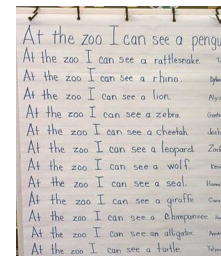 At the zoo I can see a pengu
At the zoo I can see a rattlesnake.
At the zoo I can see a rhino.
At the zoo I can see a lion.
At the zoo I can see a zebra.
At the zoo I can see a cheetah
At the zoo I can see a leopard. Zach
At the zoo I can see a wolf.
At the zoo I can see a seal.
At the zoo I can see a giraffe
At the zoo I can see a chimpanzee
At the zoo I can see an alligator.
At the zoo I can see a turtle